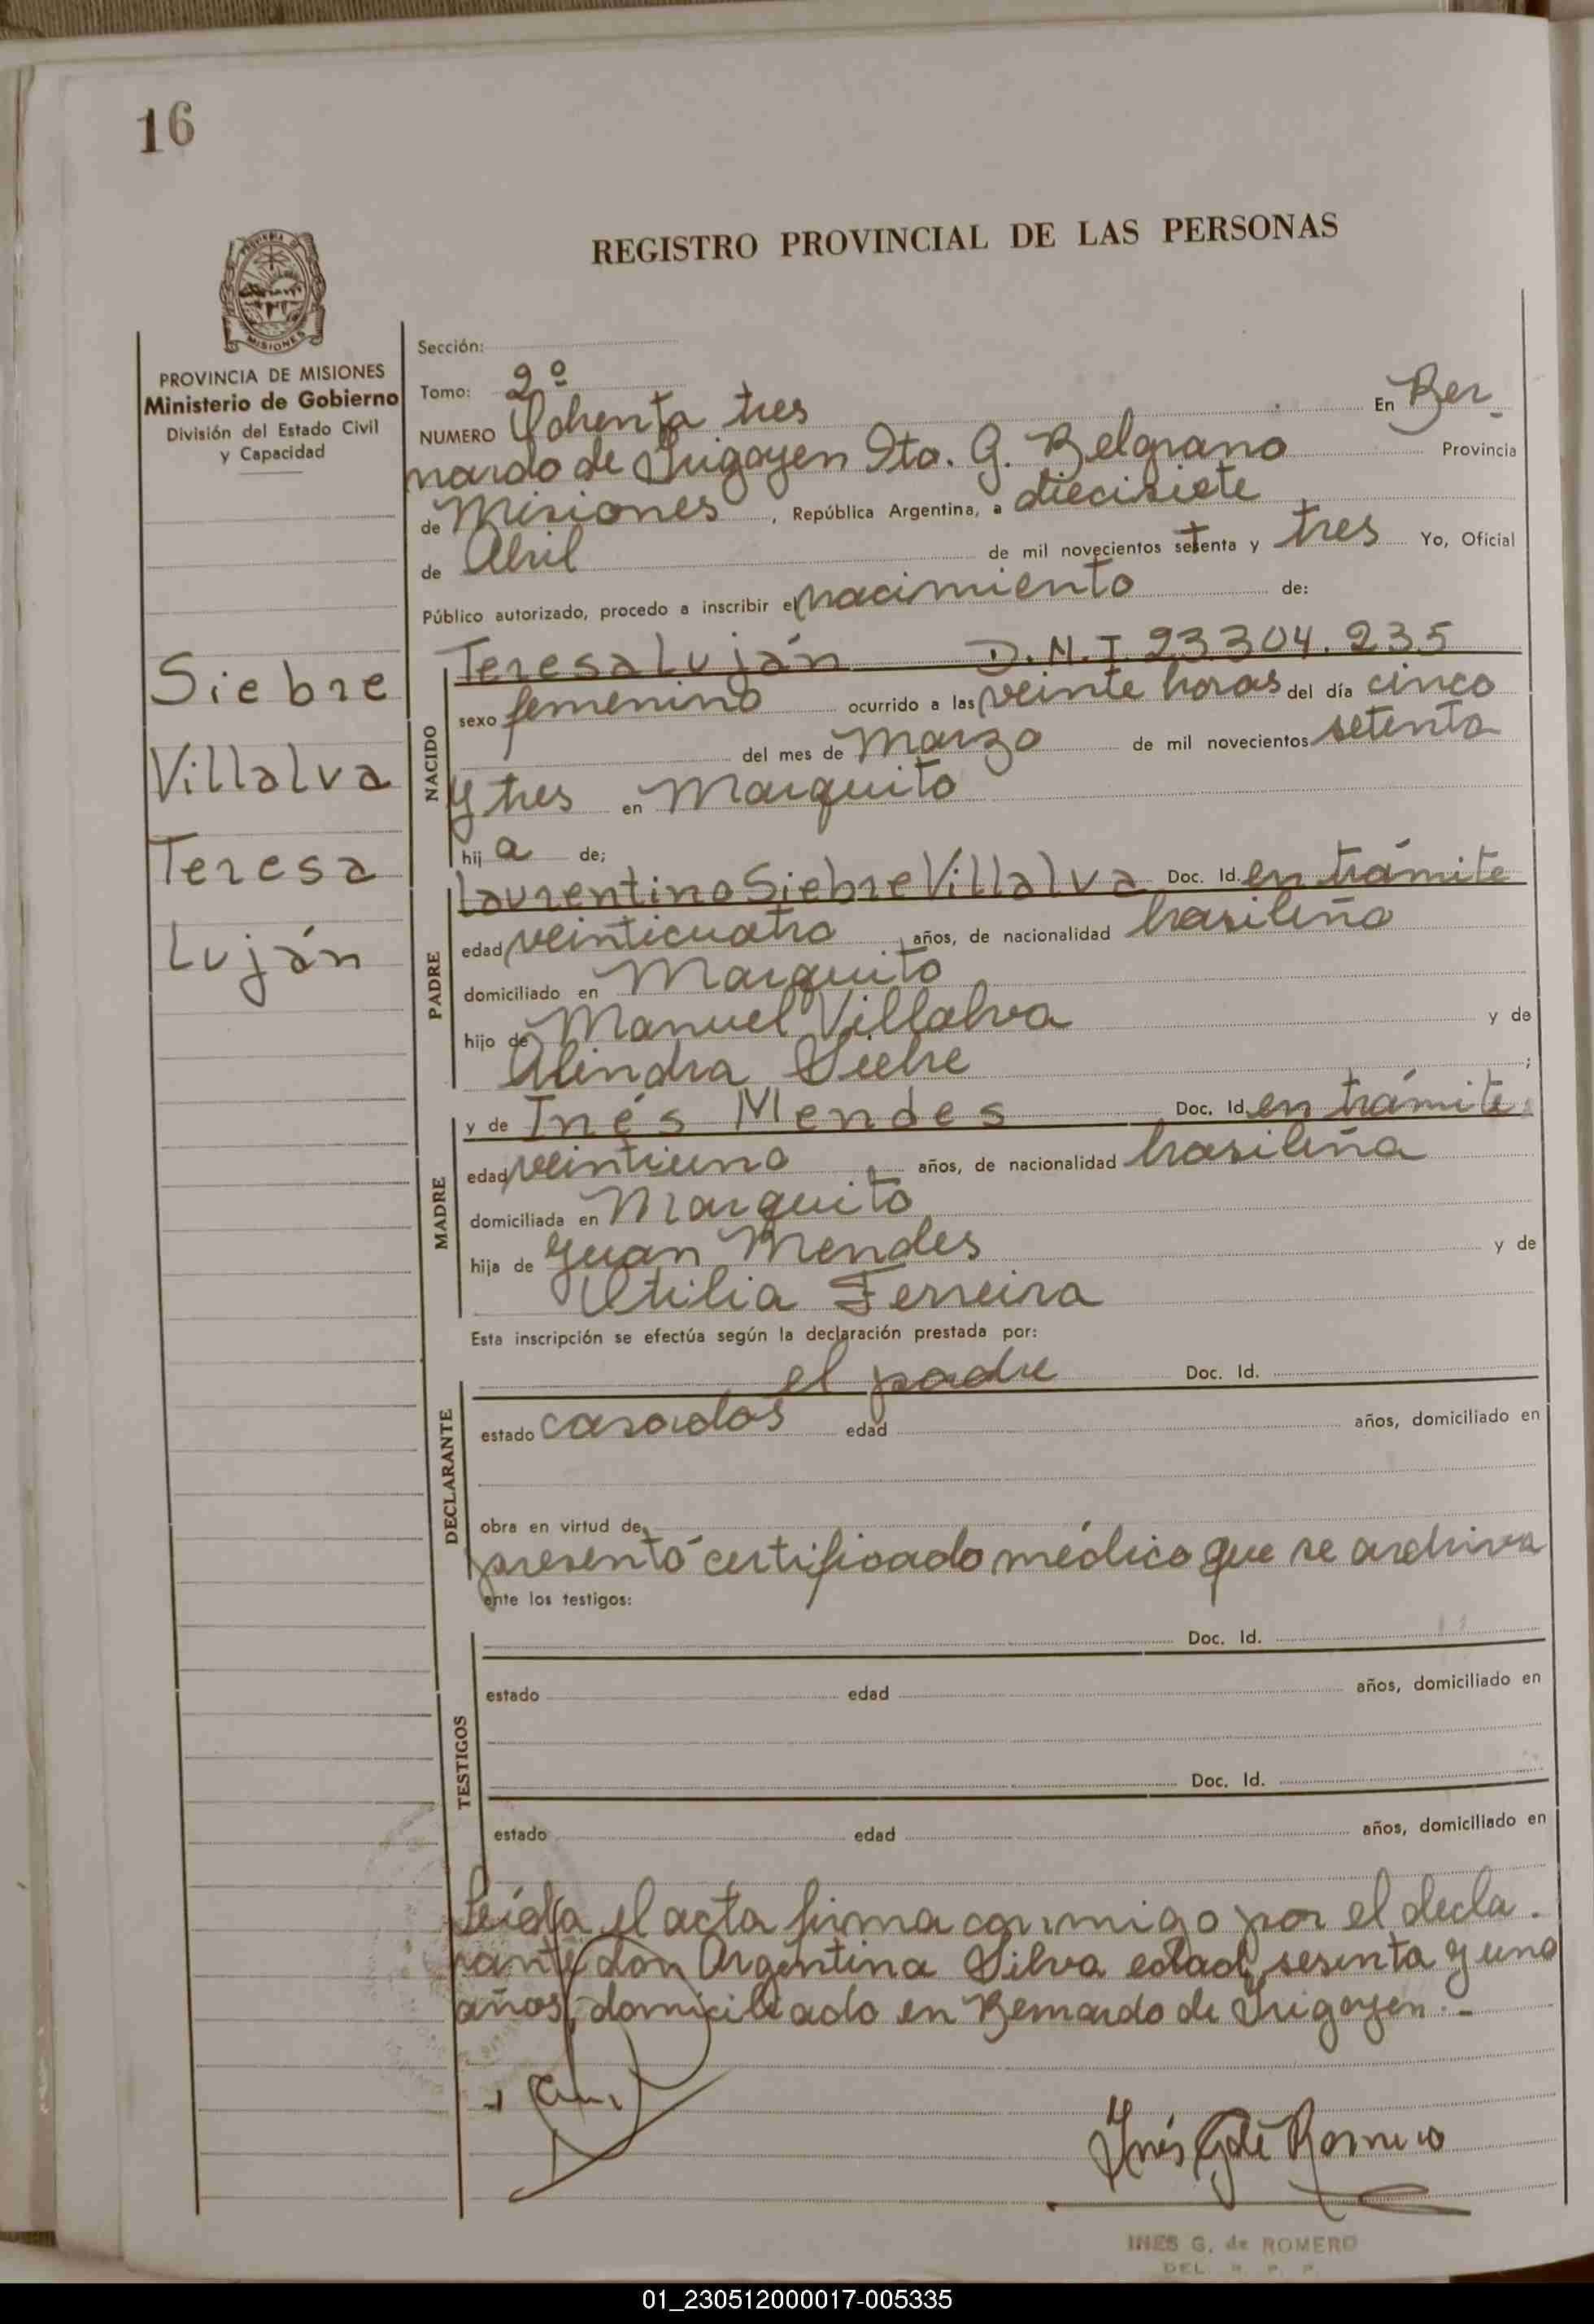 16
REGISTRO PROVINCIAL DE LAS PERSONAS
MISIONES
PROVINCIA DE MISIONES
Ministerio de Gobierno
División del Estado Civil
y Capacidad
Siebre
Villalva
Teresa
Luján
Sección:
Tomo: 2º
NUMERO Ochenta tres En Ber-
nardo de Irigoyen Dto. G. Belgrano Provincia
de Misiones, República Argentina, a diecisiete
de Abril de mil novecientos setenta y tres Yo, Oficial
Público autorizado, procedo a inscribir el nacimiento de:
NACIDO
Teresa Luján D.N.I 23304.235
sexo femenino ocurrido a las veinte horas del día cinco
del mes de Marzo de mil novecientos setenta
y tres en Marquito
hij a de;
PADRE
Laurentino Siebre Villalva Doc. Id. en trámite
edad veinticuatro años, de nacionalidad brasileño
domiciliado en Marquito
hijo de Manuel Villalva y de
Alindra Siebre ;
MADRE
y de Inés Mendes Doc. Id. en trámite
edad veintiuno años, de nacionalidad brasileña
domiciliada en Marquito
hija de Juan Mendes y de
Otilia Ferreira
Esta inscripción se efectúa según la declaración prestada por:
DECLARANTE
el padre Doc. Id.
estado casados edad años, domiciliado en
obra en virtud de
presentó certificado médico que se archiva
ante los testigos:
TESTIGOS
Doc. Id.
estado edad años, domiciliado en
Doc. Id.
estado edad años, domiciliado en
Leída el acta firma conmigo por el decla-
rante don Argentina Silva edad sesenta y uno
años, domiciliado en Bernardo de Irigoyen.-
Inés G de Romero
INES G. de ROMERO
DEL. R. P. P.
01_230512000017-005335